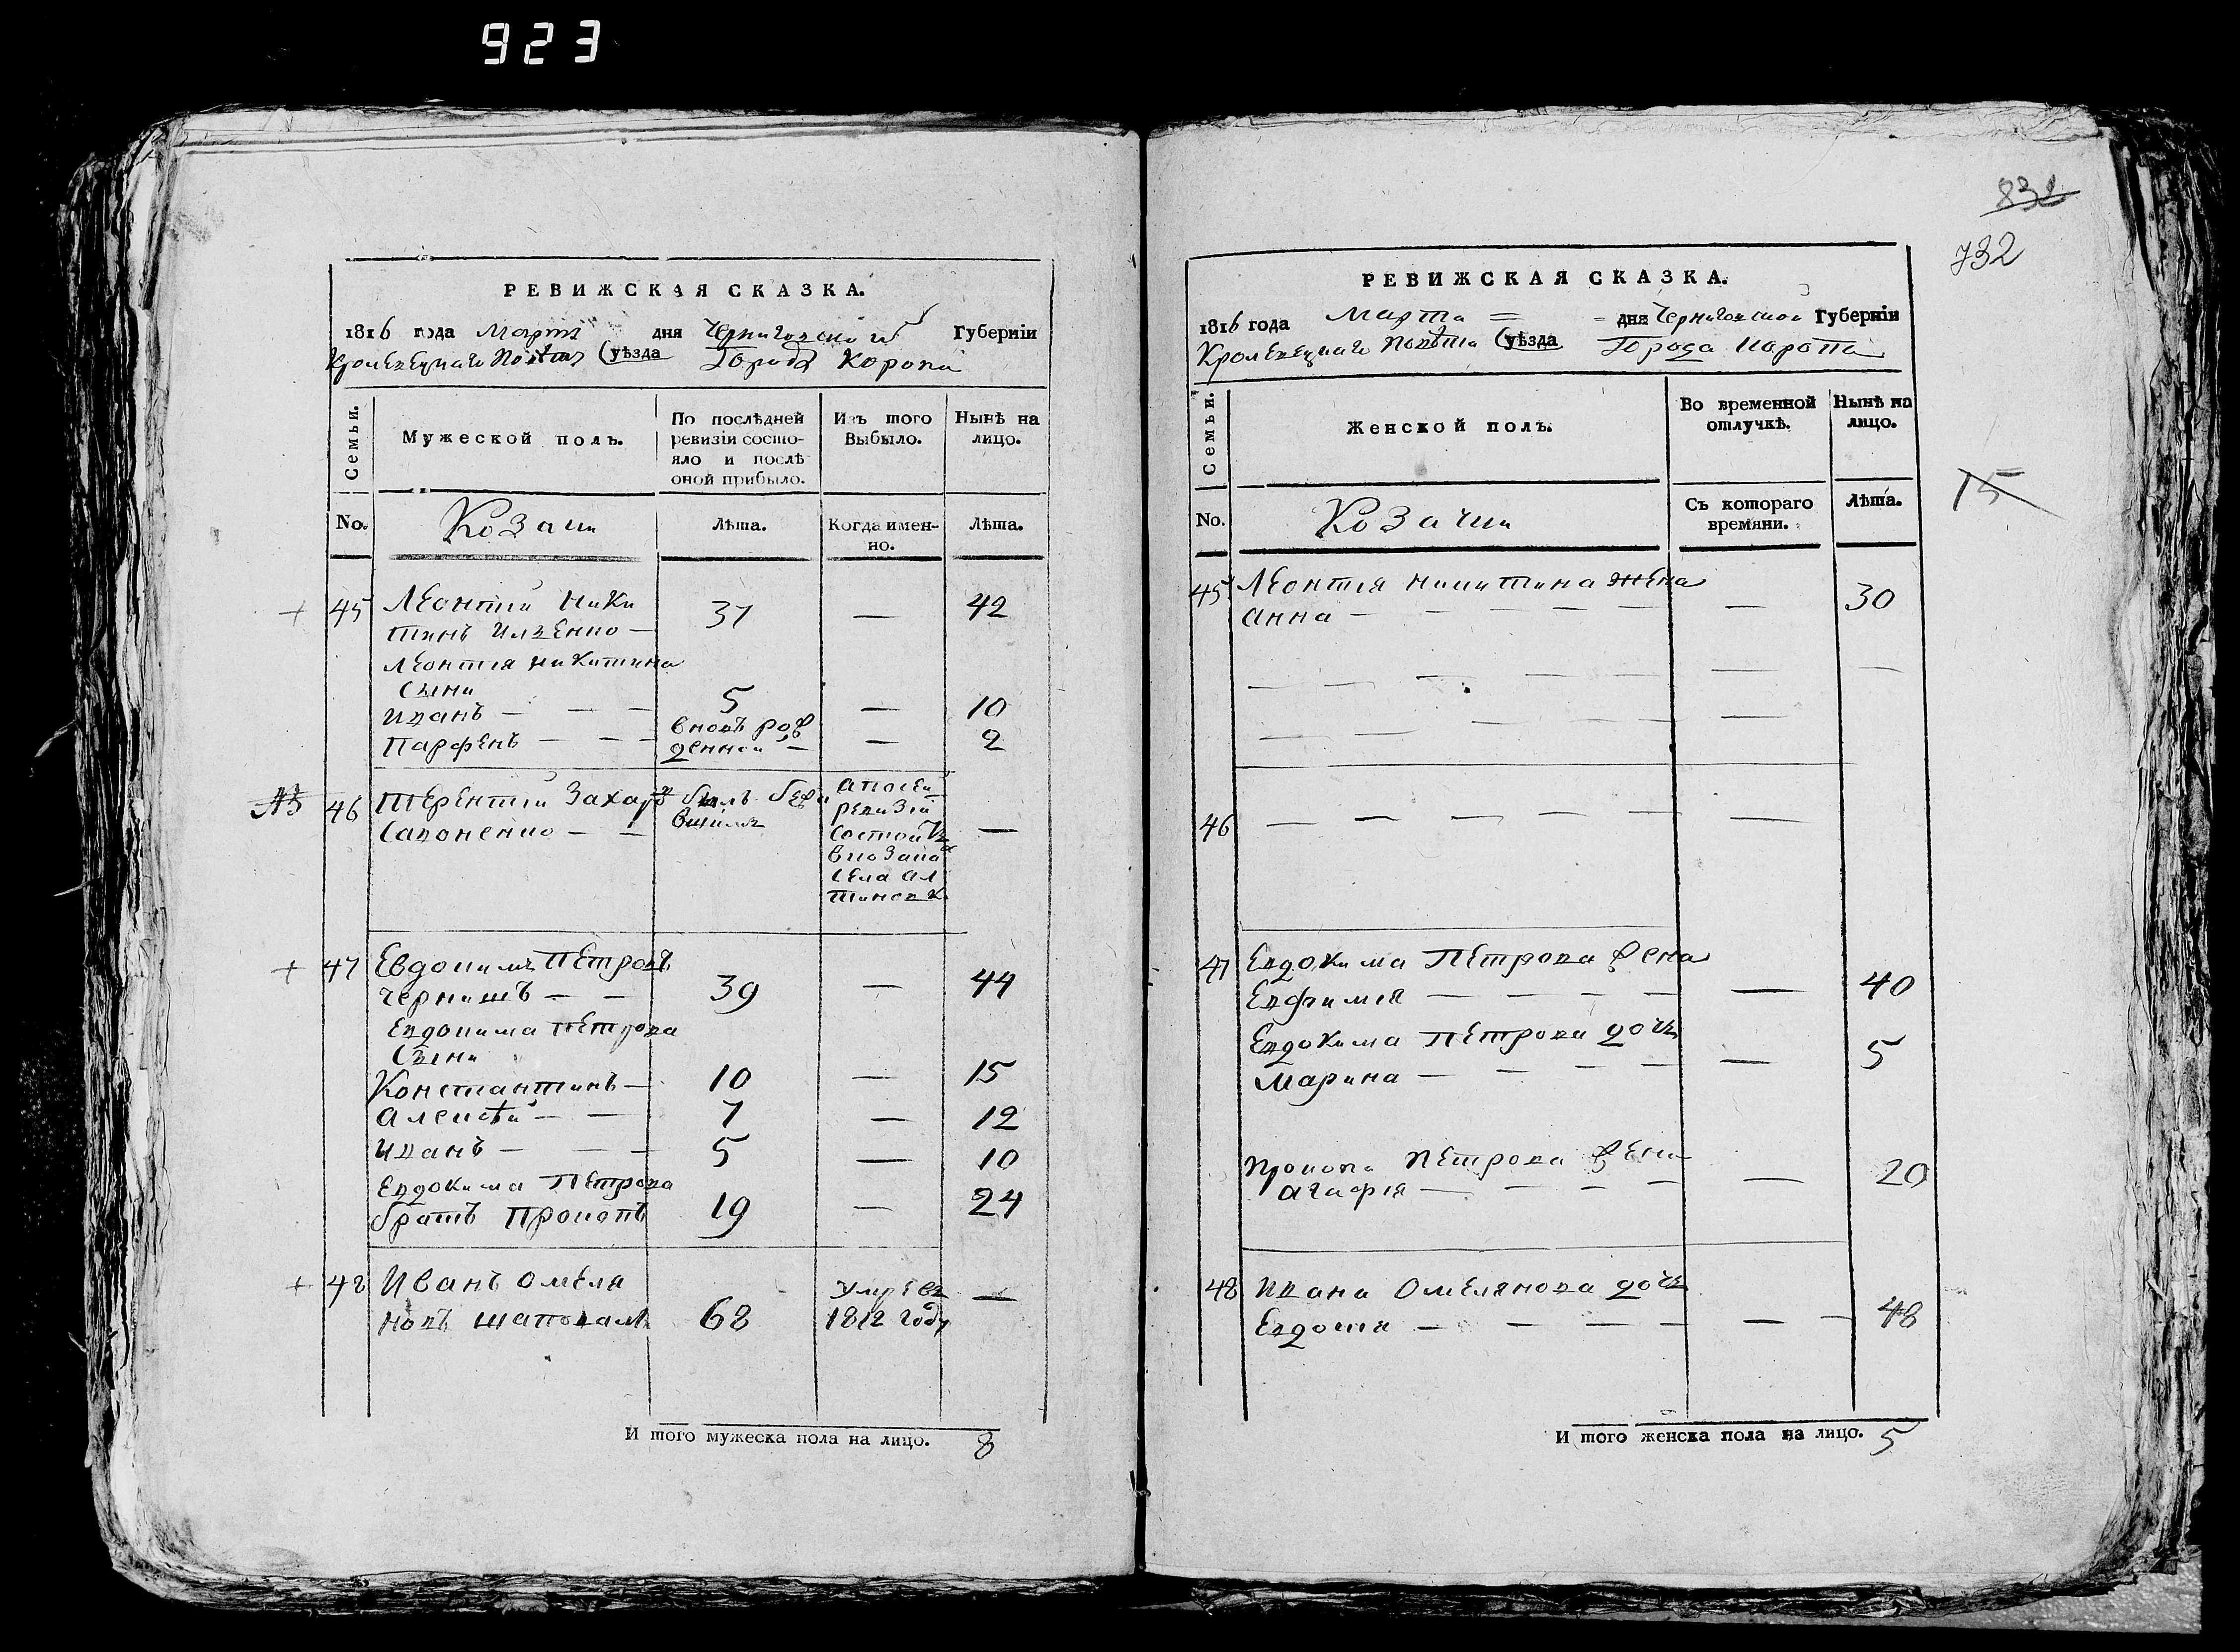 923
РЕВИЖСКАЯ СКАЗКА.
1816 года Марта дня Черниговской Губерніи
Кролевецкаго Повѣта (уѣзда Города Коропа
Семьи.
Мужеской полъ.
По послѣдней ревизіи состояло и послѣ оной прибыло.
Изъ того Выбыло.
Нынѣ на лицо.
No.
Козаки
Лѣта.
Когда именно.
Лѣта.
45 Леонтій Ники
тинъ Илченко — 37 — 42
Леонтія Никитина
Сыни
Иванъ — — — 5 — 10
Парфенъ — — — вновь рож
денной — — 2
46 Терентій Захаръ
Сапоненко — —
апослѣ
ревизіи
села Ал
—
47 Евдокимъ Петровъ
Чернишъ — — 39 — 44
Евдокима Петрова
Сыни
Константинъ — 10 — 15
Алексѣй — — 7 — 12
Иванъ — — — 5 — 10
Евдокима Петрова
братъ Прокопъ 19 — 24
48 Иванъ Омеля
новъ Шаповалъ 68 Умре въ 1812 году —
И того мужеска пола на лицо. 8
832
732
15
РЕВИЖСКАЯ СКАЗКА.
1816 года Марта = - дня Черниговской Губерніи
Кролевецкаго Повѣта (уѣзда Города Коропа
Семьи.
Женской полъ.
Во временной отлучкѣ.
Нынѣ на лицо.
No.
Козачки
Съ котораго времяни.
Лѣта.
45 Леонтія Никитина жена
Анна — — — — — — — 30
46 — — — — — —
47 Евдокима Петрова жена
Евфимія — — — — — 40
Евдокима Петрова дочь
Марина — — — — — 5
Прокопа Петрова жена
Агафія — — — — — 20
48 Ивана Омелянова дочь
Евдокія — — — — — — 48
И того женска пола на лицо. 5